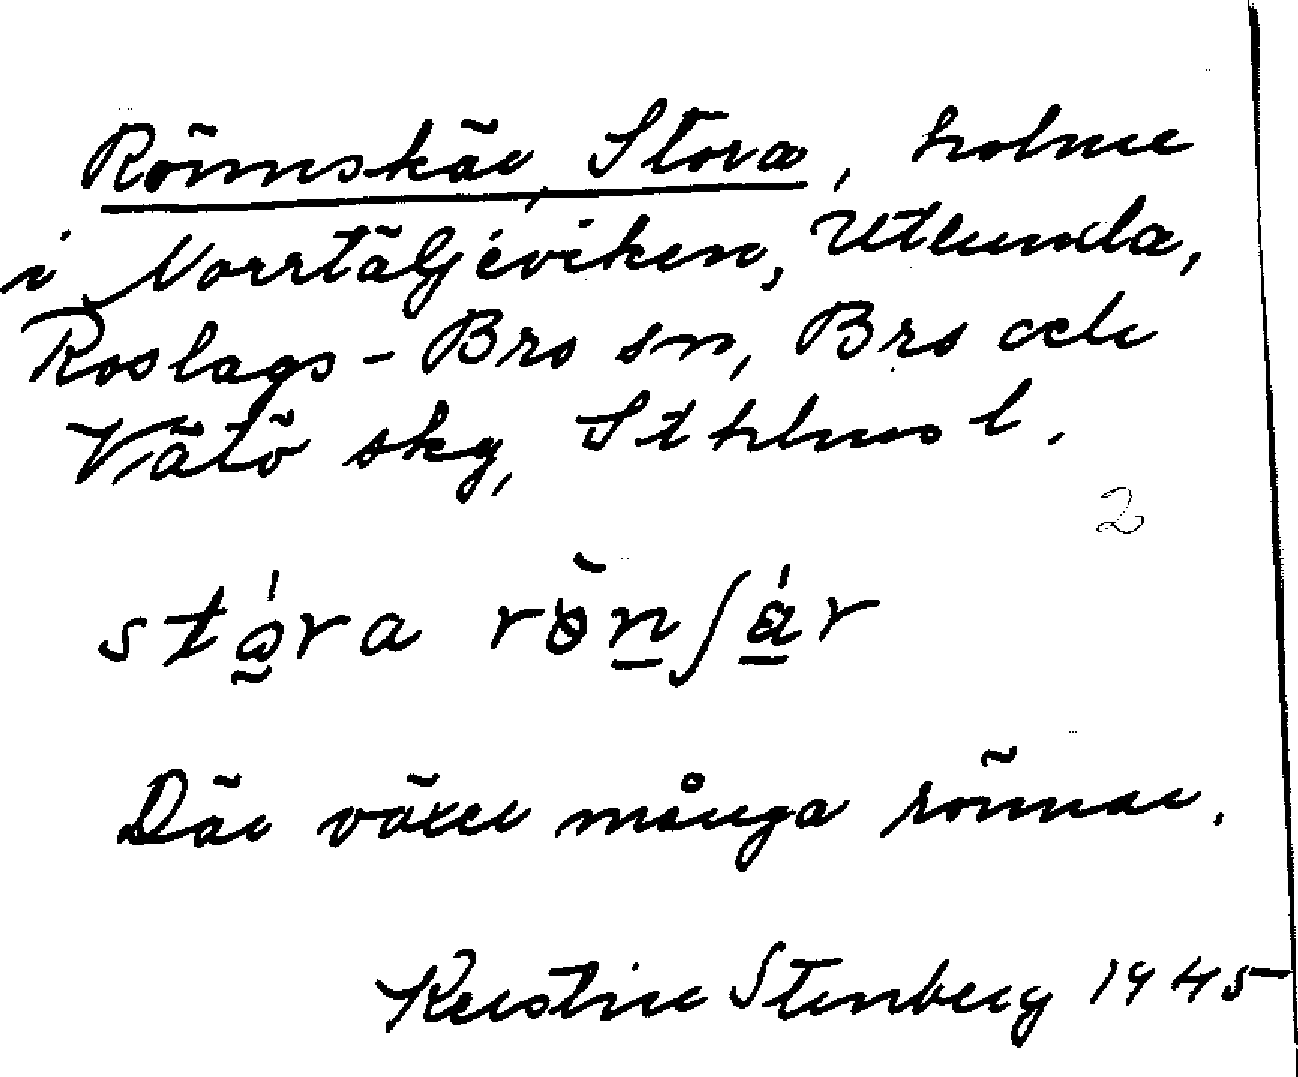 Rönnskär, Stora, holme
i Norrtäljeviken, Utlunda,
Roslags-Bro sn, Bro och
Vätö skg, Sthlms l.
2
stóra rönʃär
Där växer många rönnar.
Kerstin Stenberg 1945